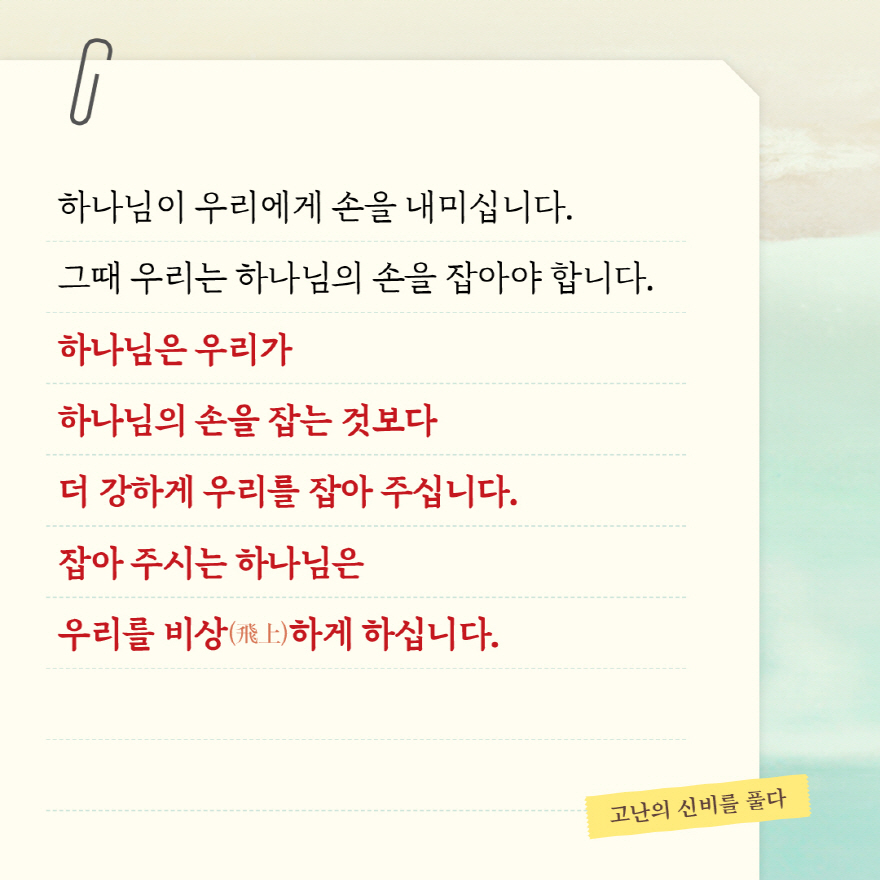 하나님이 우리에게 손을 내미십니다.
그때 우리는 하나님의 손을 잡아야 합니다.
하나님은 우리가
하나님의 손을 잡는 것보다
더 강하게 우리를 잡아 주십니다.
잡아 주시는 하나님은
우리를 비상(飛上)하게 하십니다.
고난의 신비를 풀다